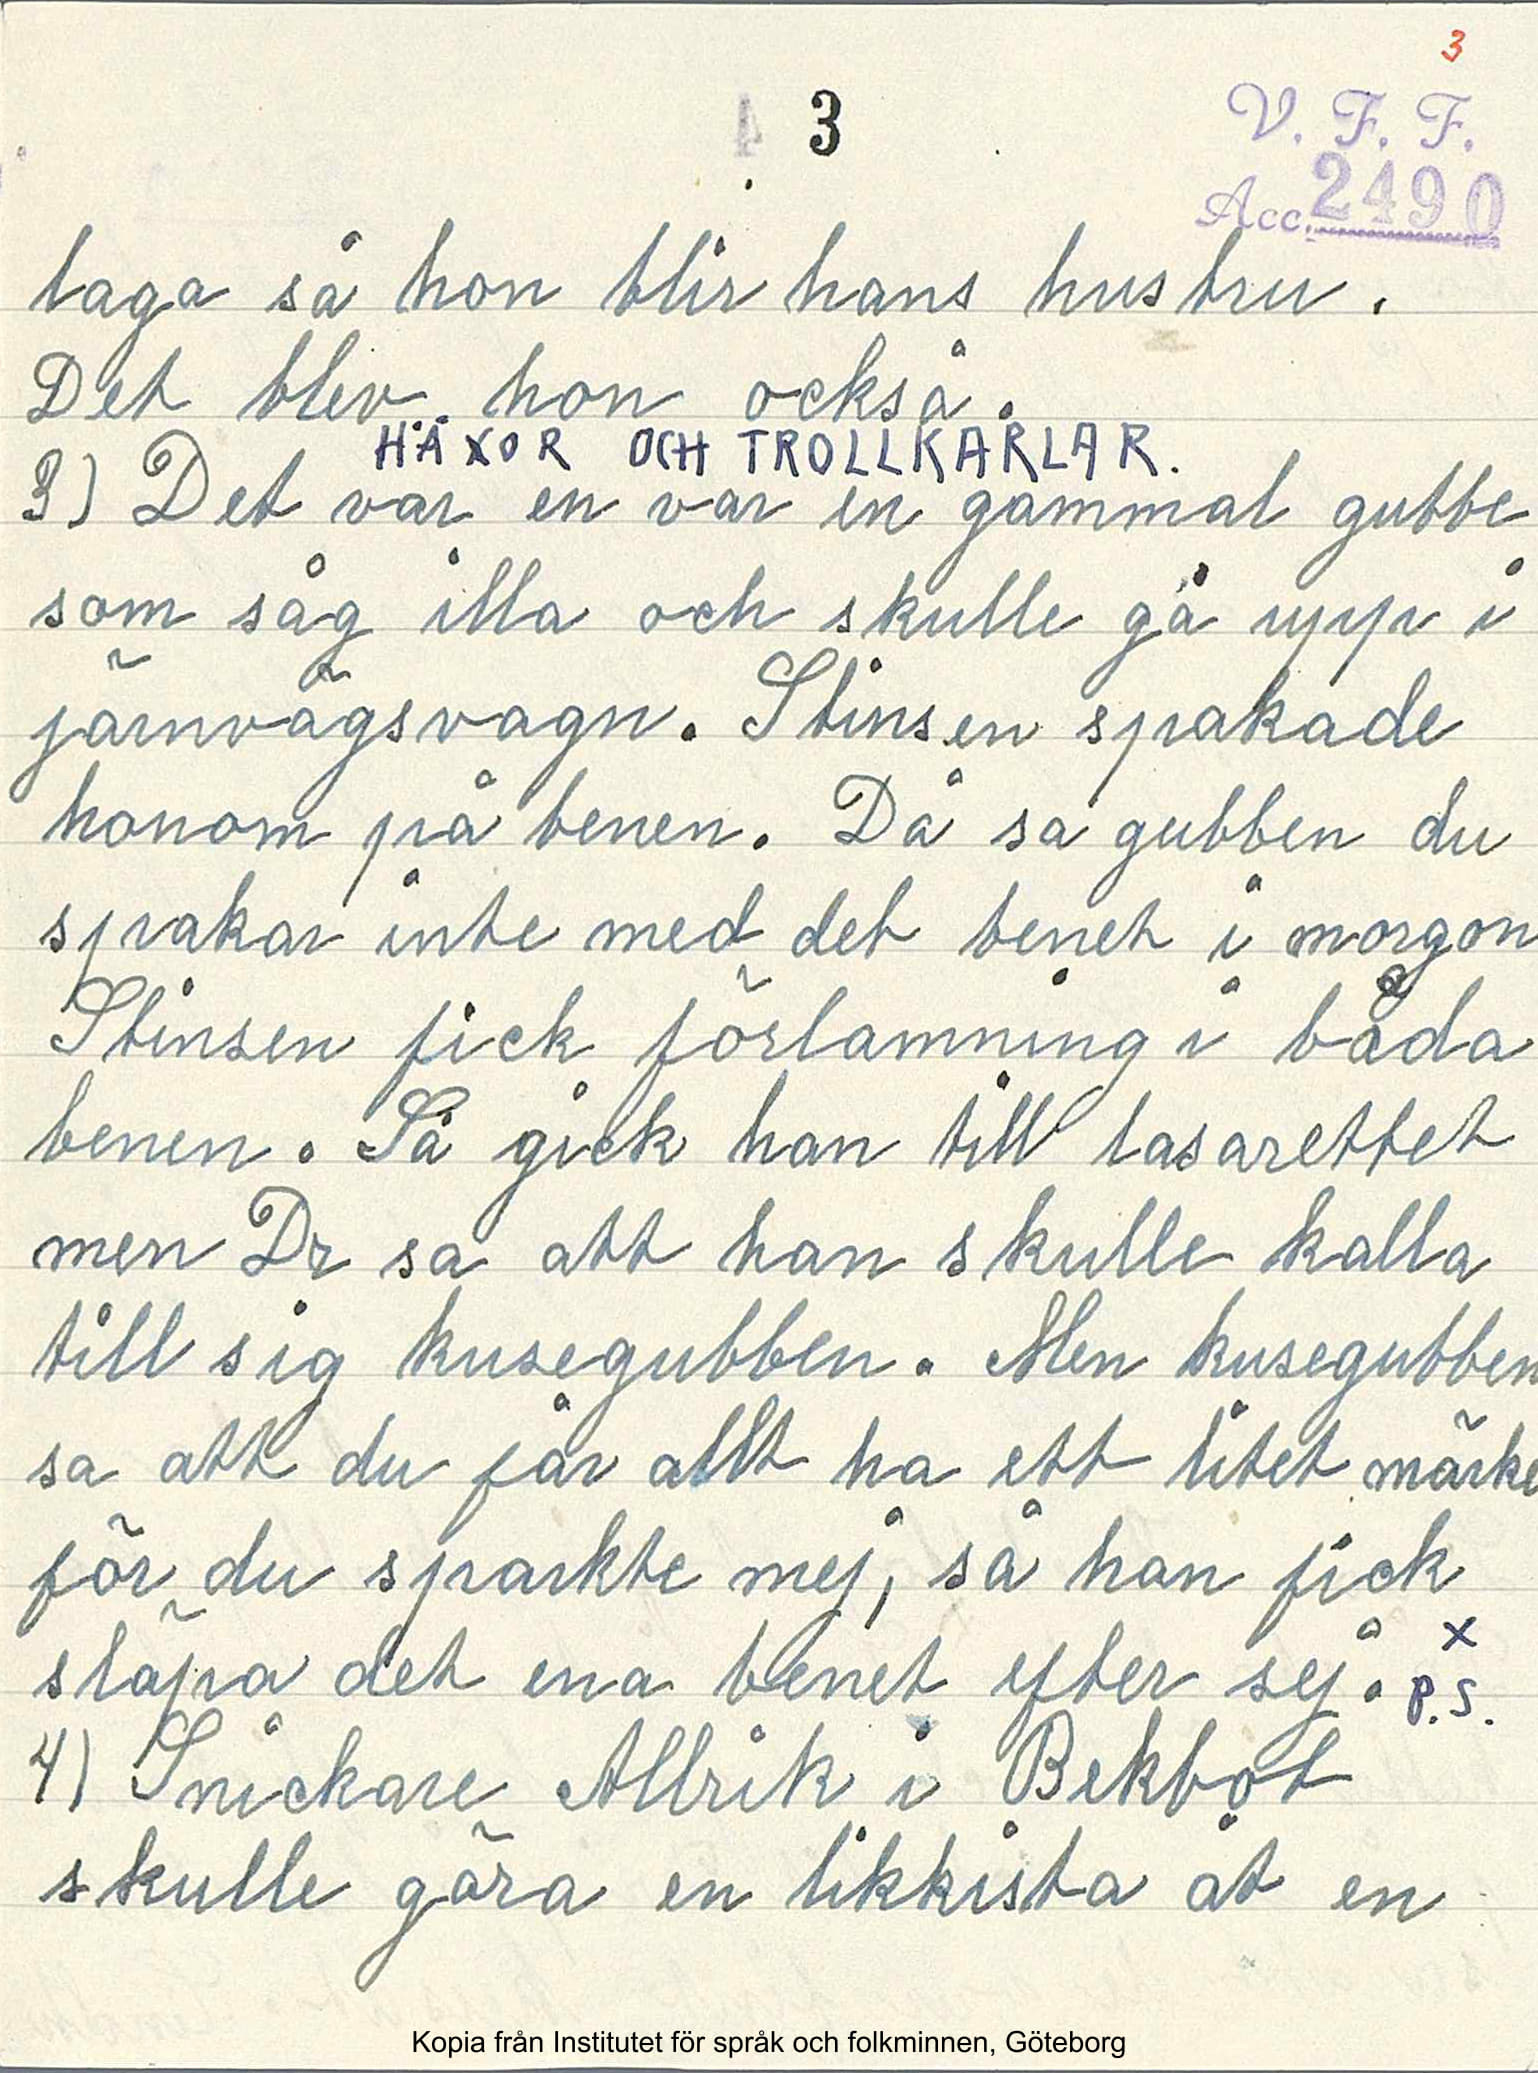 3
4 3
V. F. F.
Acc. 2490
laga så hon blir hans hustru.
Det blev hon också.
HÄXOR OCH TROLLKARLAR.
3) Det var en var en gammal gubbe
som såg illa och skulle gå upp i
järnvägsvagn. Stinsen spakade
honom på benen. Då sa gubben du
sprakar inte med det benet i morgon
Stinsen fick förlamning i båda
benen. Så gick han till lasarettet
men Dr sa att han skulle kalla
till sig kusegubben. Men kusegubben
sa att du får allt ha ett litet märke
för du sparkte mej, så han fick
släpa det ena benet efter sej. x
P.S.
4) Snickare Allrik i Bekbot
skulle göra en likkista åt en
Kopia från Institutet för språk och folkminnen, Göteborg